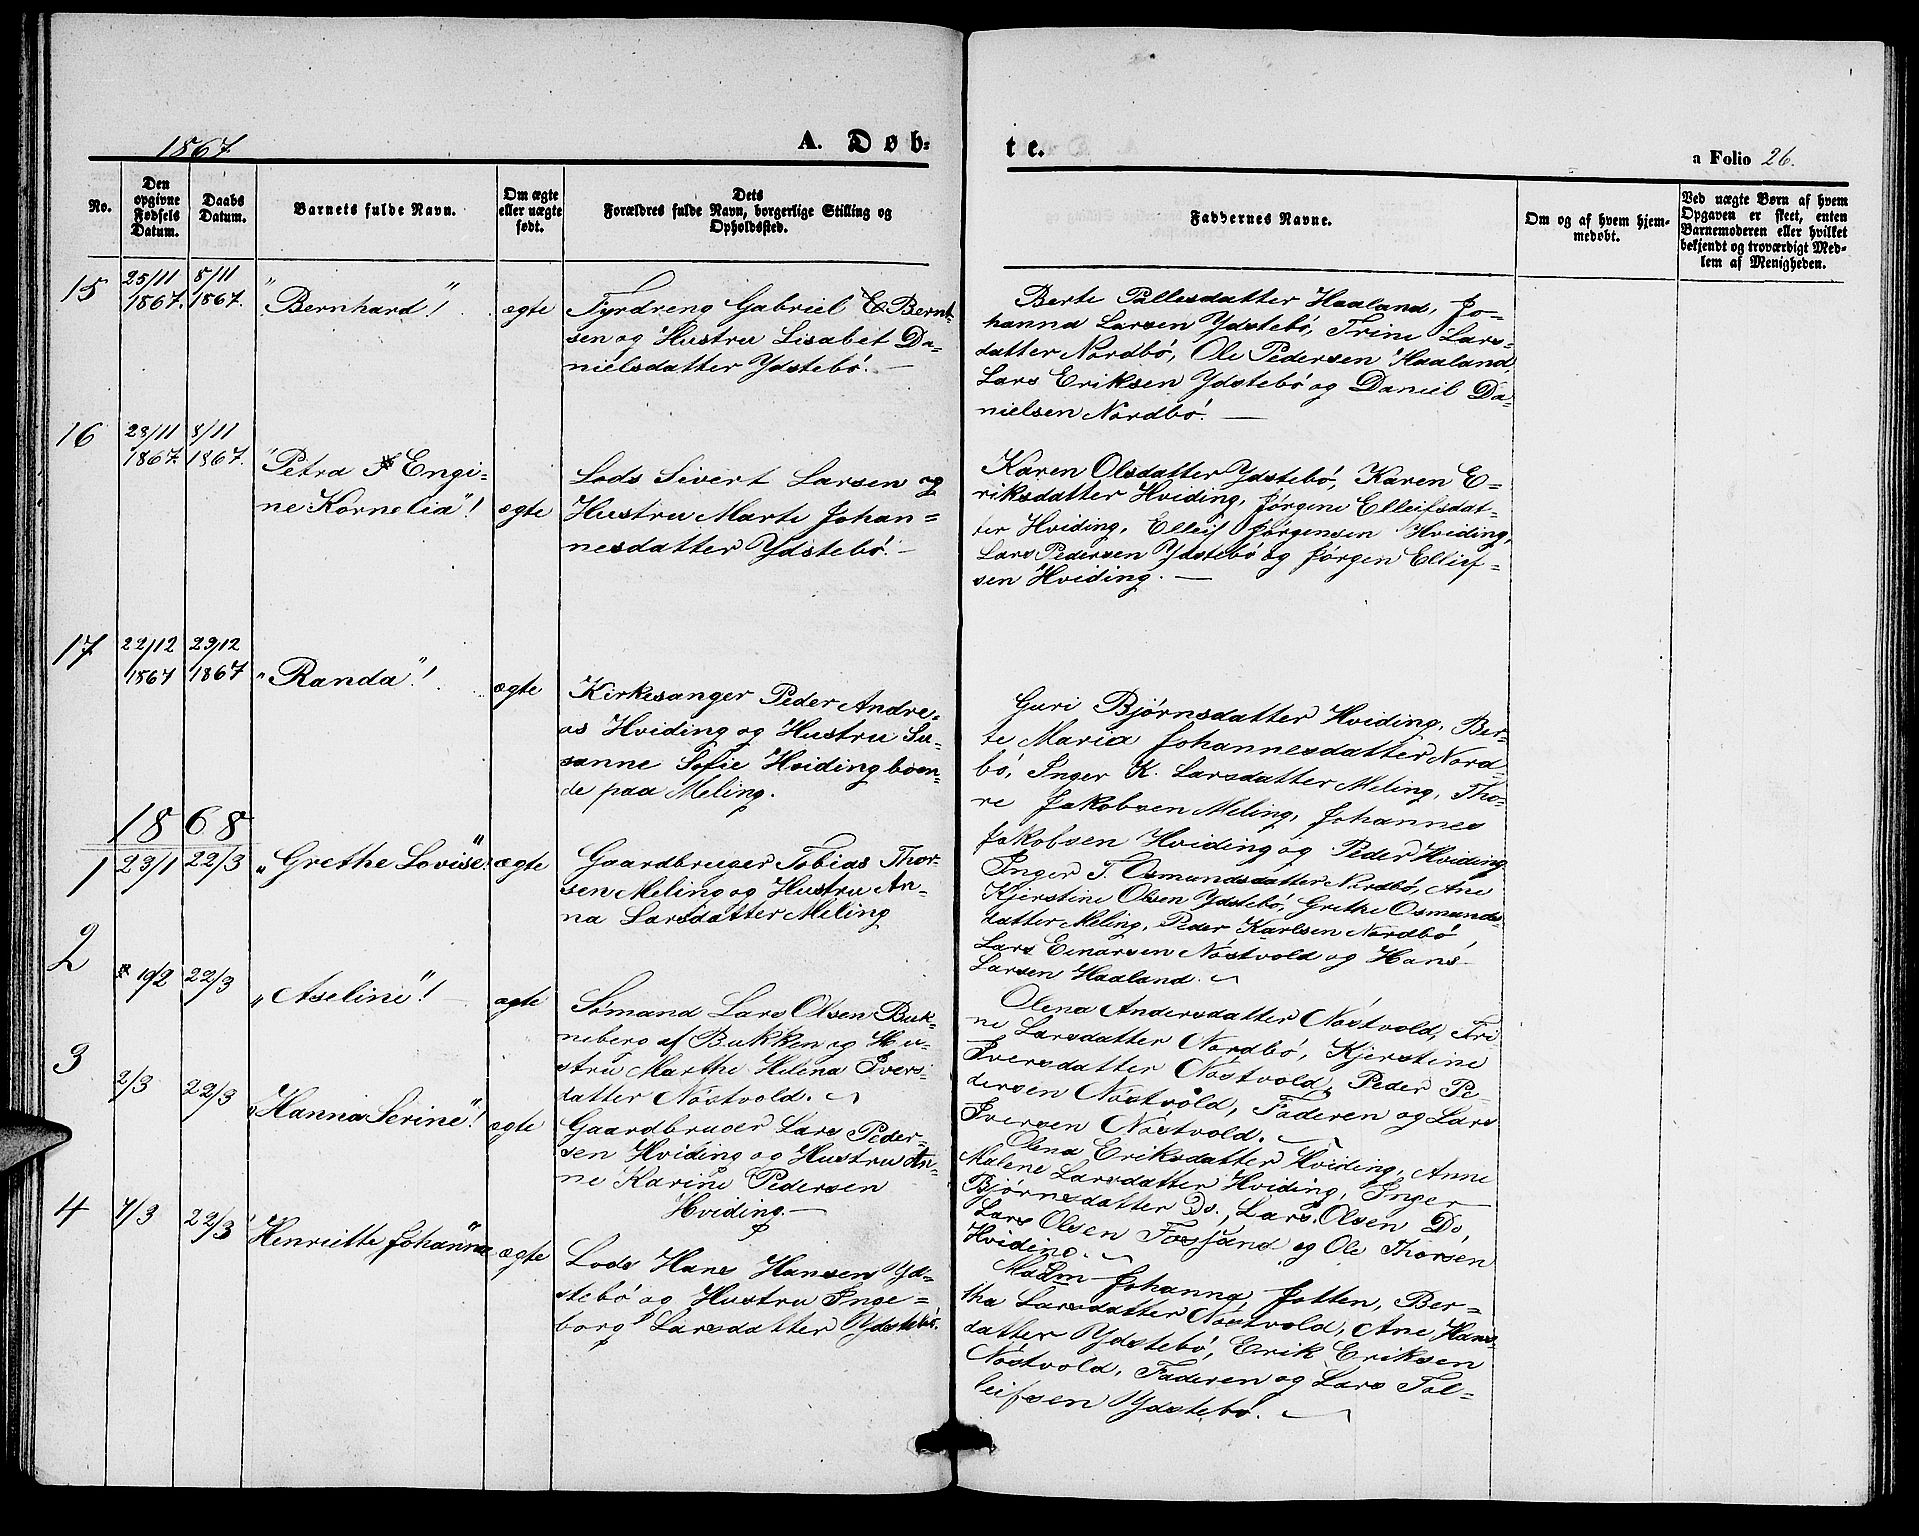 1867
A. Døb-
te.
a Folio 26.
No.
Den opgivne Fødsels Datum.
Daabs Datum.
Barnets fulde Navn.
Om ægte eller uægte født.
Dets Forældres fulde Navn, borgerlige Stilling og Opholdssted.
Faddernes Navne.
Om og af hvem hjemmedøbt.
Ved uægte Børn af hvem Opgaven er skeet, enten Barnemoderen eller hvilket bekjendt og troværdigt Medlem af Menigheden.
15
25/11 1867.
8/11 1867.
"Bernhard"!
ægte
Fyrdreng Gabriel E Bernt-
sen og Hustru Lisabet Da-
nielsdatter Ydstebö. —
Berte Pallesdatter Haaland, Jo-
hanna Larsen Ydstebö, Trine Lars-
datter Nordbö, Ole Pedersen Haaland,
Lars Eriksen Ydstebö og Daniel Da-
nielsen Nordbö. —
16
28/11 1867.
8/11 1867.
"Petra Engi-
ne Kornelia"!
ægte
Lods Sivert Larsen og
Hustru Marte Johan-
nesdatter Ydstebö. —
Karen Olsdatter Ydstebö, Karen E-
riksdatter Hviding, Jørgine Elleifsdat-
ter Hviding, Elleif Jørgensen Hviding,
Lars Pedersen Ydstebö og Jørgen Elleif-
sen Hviding. —
17
22/12 1867
29/12 1867
"Randa"!
ægte
Kirkesanger Peder Andre-
as Hviding og Hustru Su-
sanne Sofie Hviding boen-
de paa Meling.
Guri Bjørnsdatter Hviding, Ber-
te Maria Johannesdatter Nord-
bö, Inger K. Larsdatter Meling, Tho-
re Jakobsen Meling, Johannes
Jakobsen Hviding og Peder Hviding
1868
1
23/1
22/3
"Grethe Lovise"!
ægte
Gaardbruger Tobias Thor-
sen Meling og Hustru An-
na Larsdatter Meling
Inger T. Osmundsdatter Nordbö, Ane
Kjerstine Olsen Ydstebö, Grethe Osmunds-
datter Meling, Peder Karlsen Nordbö,
Lars Einarsen Nöstvold og Hans
Larsen Haaland.
2
19/2
22/3
"Aseline"!
ægte
Sömand Lars Olsen Buk-
neberg af Bukken og Hu-
stru Marthe Helena Ivers-
datter Nöstvold.
Olena Andersdatter Nöstvold, Tri
ne Larsdatter Nordbö, Kjerstine
Iversdatter Nöstvold, Peder Pe-
dersen Nöstvold, Faderen og Lars
Iversen Nöstvold.
3
2/3
22/3
"Hanna Serine"!
ægte
Gaardbruger Lars Peder-
sen Hviding og Hustru An-
ne Karine Pedersen
Hviding. —
Olena Eriksdatter Hviding, Anne
Malene Larsdatter Hviding, Inger
Bjørnsdatter Do., Lars Olsen Do,
Lars Olsen Fossand og Ole Thorsen
Hviding.
4
7/3
22/3
"Henriette Johanna"
ægte
Lods Hans Hansen Yd-
stebö og Hustru Inge-
borg Larsdatter Ydstebö.
Madm Johanna Jotten, Ber-
tha Larsdatter Nöstvold, Ane Hans-
datter Ydstebö, Erik Eriksen
Nöstvold, Faderen og Lars Tol-
leifsen Ydstebö.